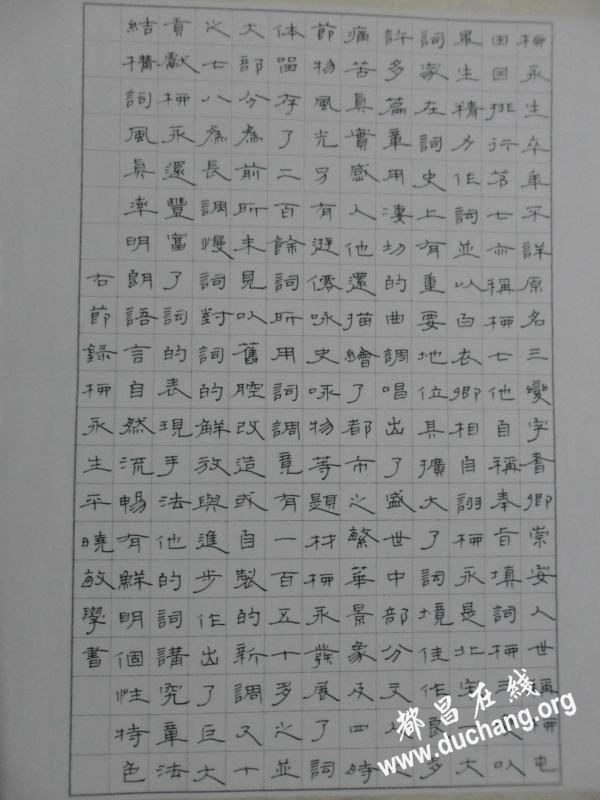 柳永生卒年不詳原名三變字耆卿崇安人世稱柳屯
田因排行第七亦稱柳七他自稱奉旨填詞柳三以
畢生精力作詞並以白衣卿相自詡柳永是北宋大
詞家在詞史上有重要地位其擴大了詞境佳作良多
許多篇章用凄切的曲調唱出了盛世中部分文人
痛苦真實感人他還描繪了都市之繁華景象及四時
節物風光另有遊僊咏史咏物等題材柳永發展了詞
体留存了二百餘詞所用詞調竟有一百五十多之並
大部分為前所未見以舊腔改造或自製的新調又十
之七八為長調慢詞對詞的解放與進步作出了巨大
貢獻柳永還豐富了詞的表現手法他的詞講究章法
結構詞風真率明朗語言自然流暢有鮮明個性特色
右節錄柳永生平曉敏學書
都昌在线
www.duchang.org